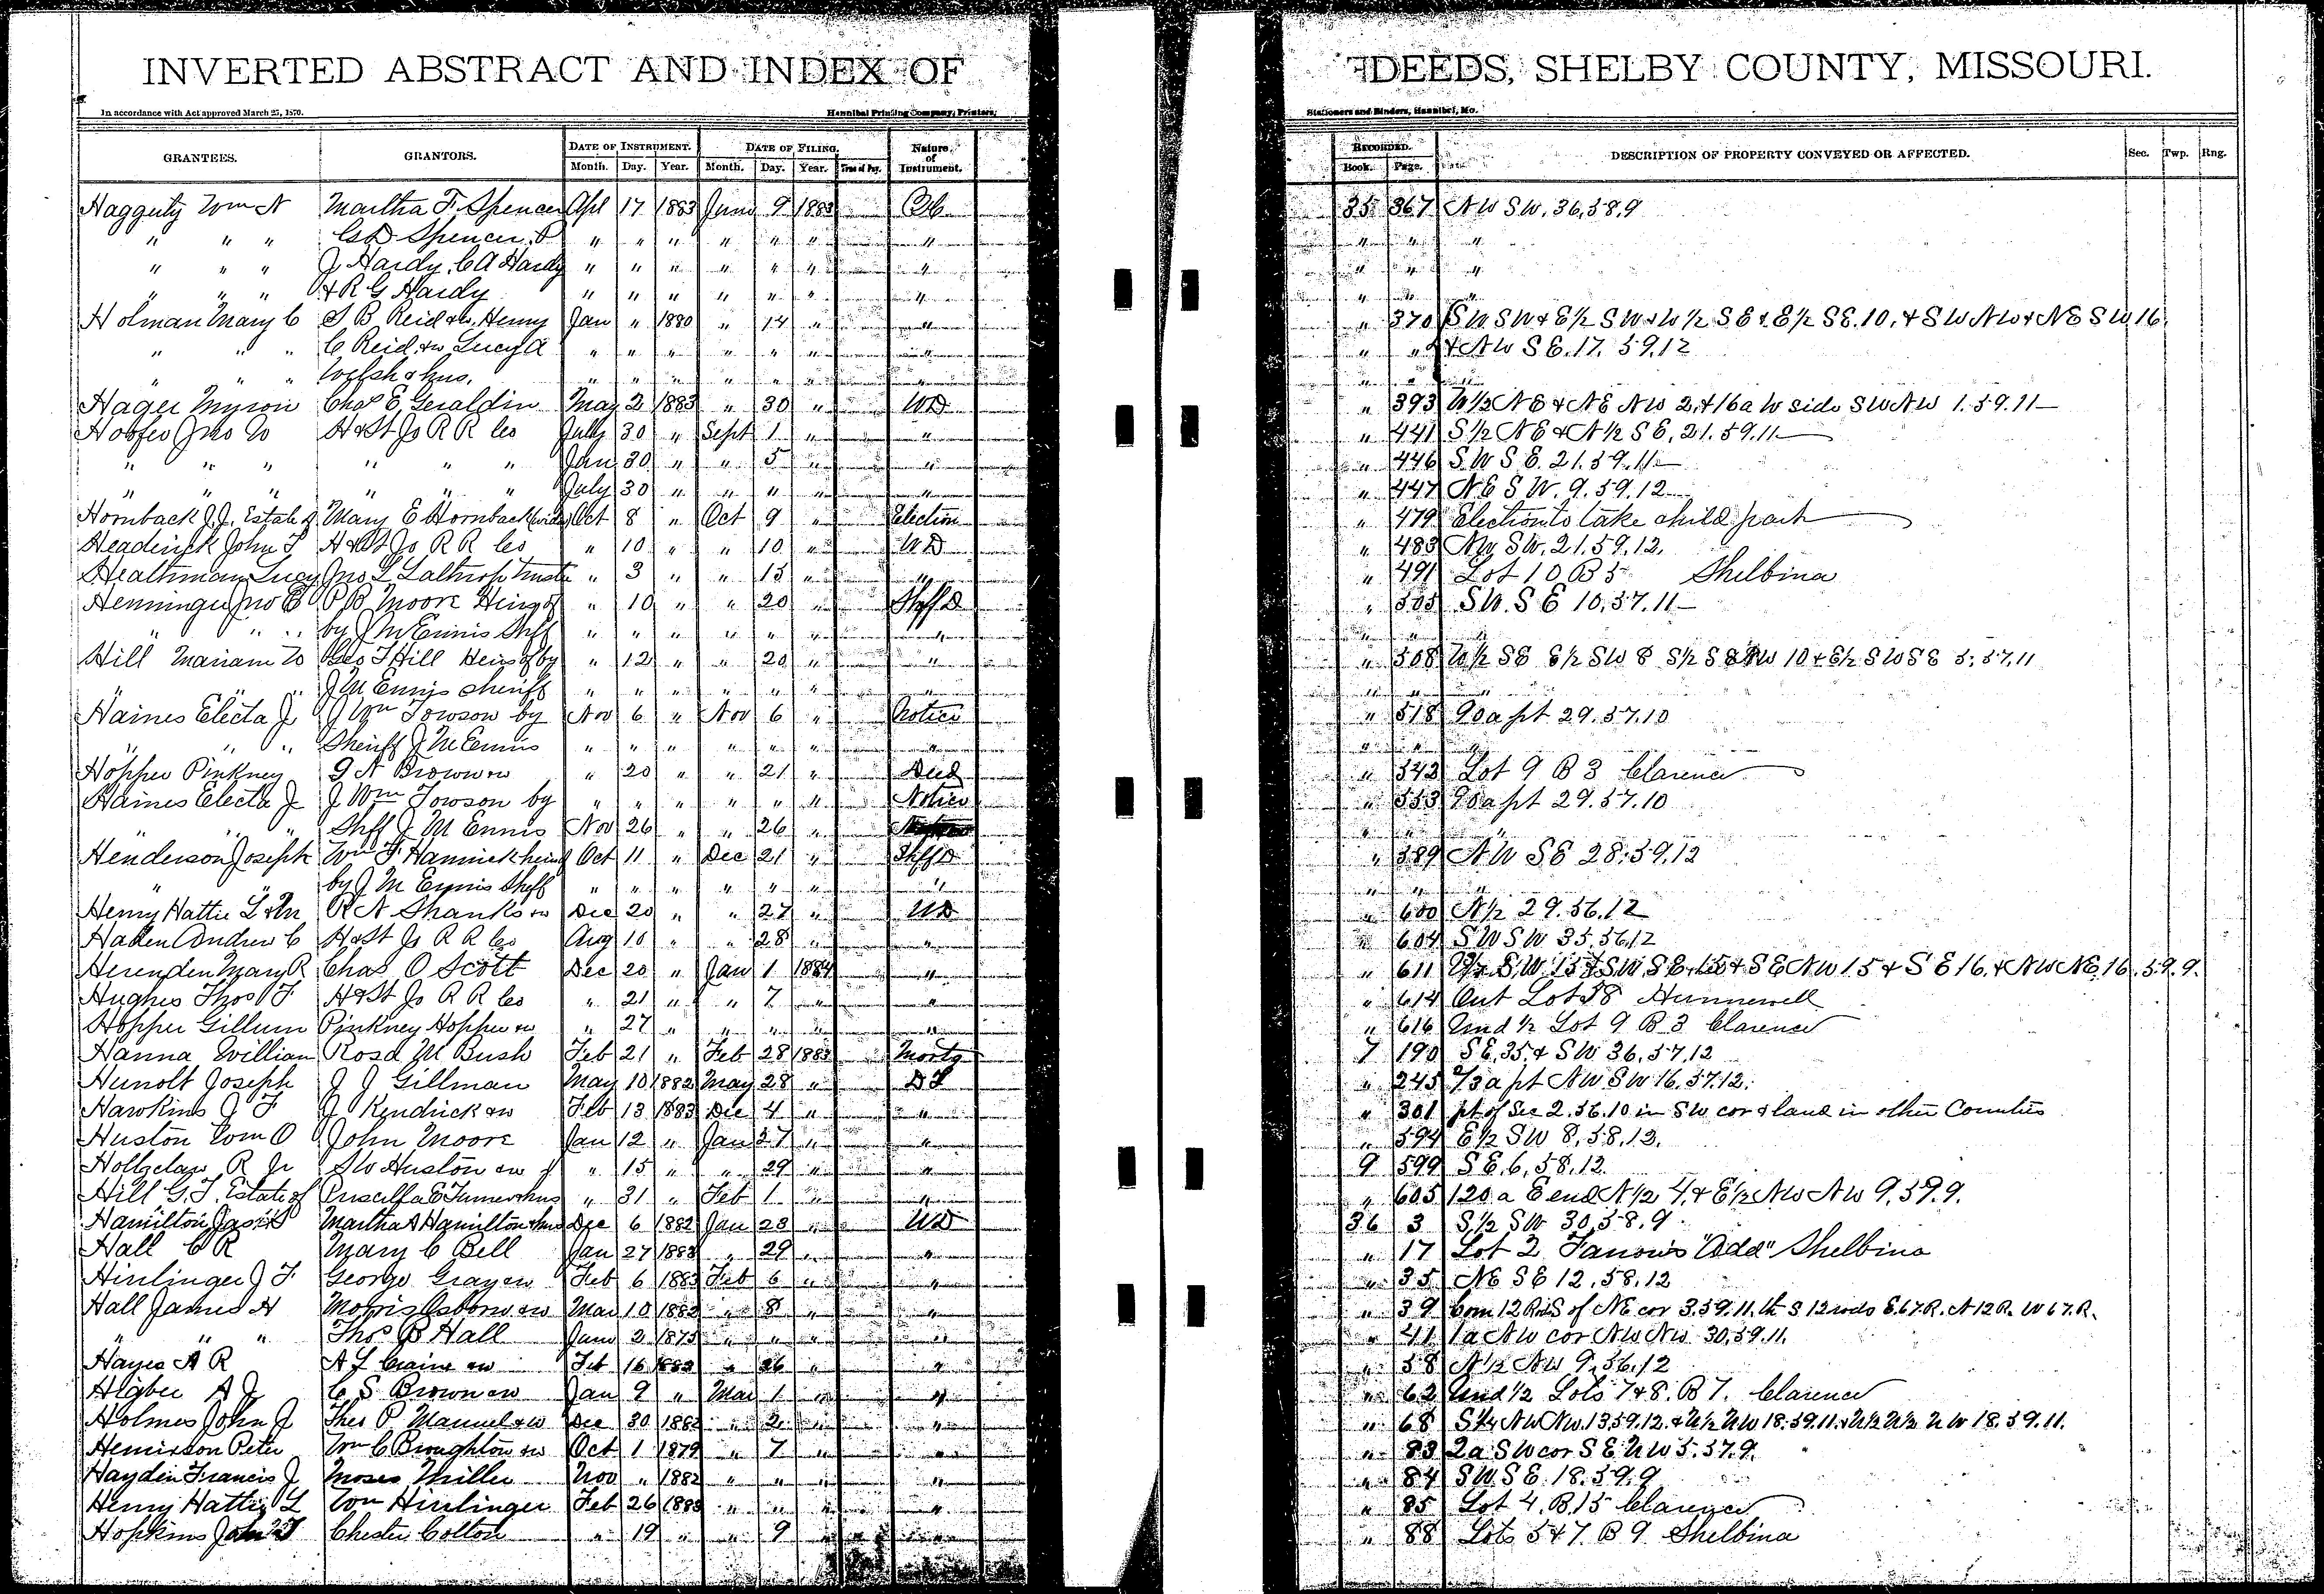 INVERTED ABSTRACT AND INDEX OF DEEDS, SHELBY COUNTY, MISSOURI.
In accordance with Act approved March 25, 1870. Hannibal Printing Company, Printers, Stationers and Binders, Hannibal, Mo.
GRANTEES. GRANTORS. DATE OF INSTRUMENT. Month. Day. Year. DATE OF FILING. Month. Day. Year. Nature of Instrument. RECORDED. Book. Page. DESCRIPTION OF PROPERTY CONVEYED OR AFFECTED. Sec. Twp. Rng.
Haggerty Wm N Martha F. Spencer Apl 17 1883 June 9 1883 35 367 NW SW. 36,58,9
" " " G D Spencer. P " " " " " " " " " "
" " " J Hardy. C A Hardy " " " " " " " " " "
" " " & R G Hardy " " " " " " " " " "
Holman Mary C S B Reid &w. Henry Jan " 1880 " 14 " " " 370 SW SW & E½ SW & W½ SE & E½ SE. 10, & SW NW & NE SW 16.
" " " C Reid. &w Lucy A " " " " " " " " " & NW SE. 17. 59.12
" " " Welsh & hus. " " " " " " " " " "
Hager Myron Chas E. Geraldin May 2 1883 " 30 " WD " 393 W½ NE & NE NW 2, & 16a W side SW NW 1. 59. 11
Hoofer Jno W H & St Jo R R Co July 30 " Sept 1 " " " 441 S½ NE & N½ SE, 21. 59. 11
" " " " " " Jan 30 " " 5 " " " 446 SW SE. 21. 59. 11
" " " " " " July 30 " " " " " " 447 NE SW. 9. 59. 12
Hornback J.J. Estate of Mary E Hornback (wido) Oct 8 " Oct 9 " Election " 479 Election to take child part
Headerick John T H & St Jo R R Co " 10 " " 10 " WD " 483 NW SW. 21. 59. 12.
Heathman Lucy Jno L Lathrop Truste " 3 " " 13 " " " 491 Lot 10 B 5 Shelbina
Henninger Jno E P B Moore Heirs of " 10 " " 20 " Shff D " 505 SW. SE 10, 57. 11
" " " by J M Ennis Shff " " " " " " " " "
Hill Mariam W Geo T Hill Heirs of by " 12 " " 20 " " " 508 W½ SE E½ SW 8 S½ SE NW 10 & E½ SW SE 5, 57. 11
" " " J M Ennis Sheriff " " " " " " " " "
Haines Electa J J Wm Towson by Nov 6 " Nov 6 " Notice " 518 90a pt 29. 57. 10
" " " Sheriff J M Ennis " " " " " " " " " "
Hopper Pinkney I N Brown &w " 20 " " 21 " Deed " 542 Lot 9 B 3 Clarence
Haines Electa J J Wm Towson by " " " " " " Notice " 553 90a pt 29. 57. 10
" " " Shff J M Ennis Nov 26 " " 26 " " " "
Henderson Joseph Wm F. Hamrick heirs of Oct 11 " Dec 21 " Shff D " 589 NW SE 28. 59. 12
" " by J M Ennis Shff " " " " " " " " " "
Henry Hattie L & Wm R N Shanks &w Dec 20 " " 27 " WD " 600 N½ 29. 56. 12
Haden Andrew C H & St Jo R R Co Aug 10 " " 28 " " " 604 SW SW 35, 56, 12
Herenden Mary R Chas O Scott Dec 20 " Jan 1 1884 " " 611 SW 15 & SW SE 15 & SE NW 15 & SE 16, & NW NE, 16. 59. 9.
Hughes Thos F. H & St Jo R R Co " 21 " " 7 " " " 614 Out Lot 58 Hunnewell
Hopper Gillum Pinkney Hopper &w " 27 " " " " " " 616 Und ½ Lot 9 B 3 Clarence
Hanna William Rosa M Bush Feb 21 " Feb 28 1883 Mortg 7 190 SE, 35. & SW 36, 57. 12
Hunolt Joseph J J Gillman May 10 1882 May 28 " D T " 245 pt NW SW 16. 57. 12.
Hawkins J F J Kendrick &w Feb 13 1883 Dec 4 " " " 301 pt of Sec 2. 56. 10 in SW cor & land in other Counties
Huston Wm O John Moore Jan 12 " Jan 27 " " " 594 E½ SW 8, 58, 12.
Hollyclaw R Jr S W Huston &w " 15 " " 29 " " 9 599 SE, 6, 58, 12.
Hill G. T. Estate of Priscilla E Turner & hus " 31 " Feb 1 " " " 605 120 a E end N½ 4, & E½ NW NW 9, 59. 9.
Hamilton Jas Martha A Hamilton & hus Dec 6 1882 Jan 23 " WD 36 3 S½ SW 30, 58, 9
Hall C R Mary C Bell Jan 27 1883 " 29 " " " 17 Lot 2 "Add" Shelbina
Hirlinger J F. George Gray &w Feb 6 1883 Feb 6 " " " 35 NE SE 12, 58, 12
Hall James H Morris Osborn &w Mar 10 1882 " 8 " " " 39 Com 12 Rods S of NE cor 3. 59. 11, th S 12 rods E. 67 R. N 12 R. W 67. R.
" " " Thos B Hall June 2 1875 " " " " " 41 1a NW cor NW NW. 30, 59. 11.
Hayes A R A L Craine &w Feb 16 1883 " 26 " " " 58 N½ NW 9, 56, 12
Higbee A J C S Brown &w Jan 9 " Mar 1 " " " 62 Und ½ Lots 7 & 8. B 7. Clarence
Holmes John J Theo P. Manuel &w Dec 30 1882 " 2 " " " 68 NW NW. 13. 59. 12. & N½ NW 18. 59. 11. & N½ N½ NW 18. 59. 11.
Henrixson Peter Wm C Broughton &w Oct 1 1879 " 7 " " " 83 2a SW cor SE NW 5. 57. 9.
Hayden Francis J Moses Miller Nov " 1882 " " " " " 84 SW SE. 18. 59. 9
Henry Hattie L Wm Hirlinger Feb 26 1883 " " " " " 85 Lot 4. B. 15 Clarence
Hopkins John T Chester Colton " 19 " " 9 " " " 88 Lots 5 & 7. B 9 Shelbina